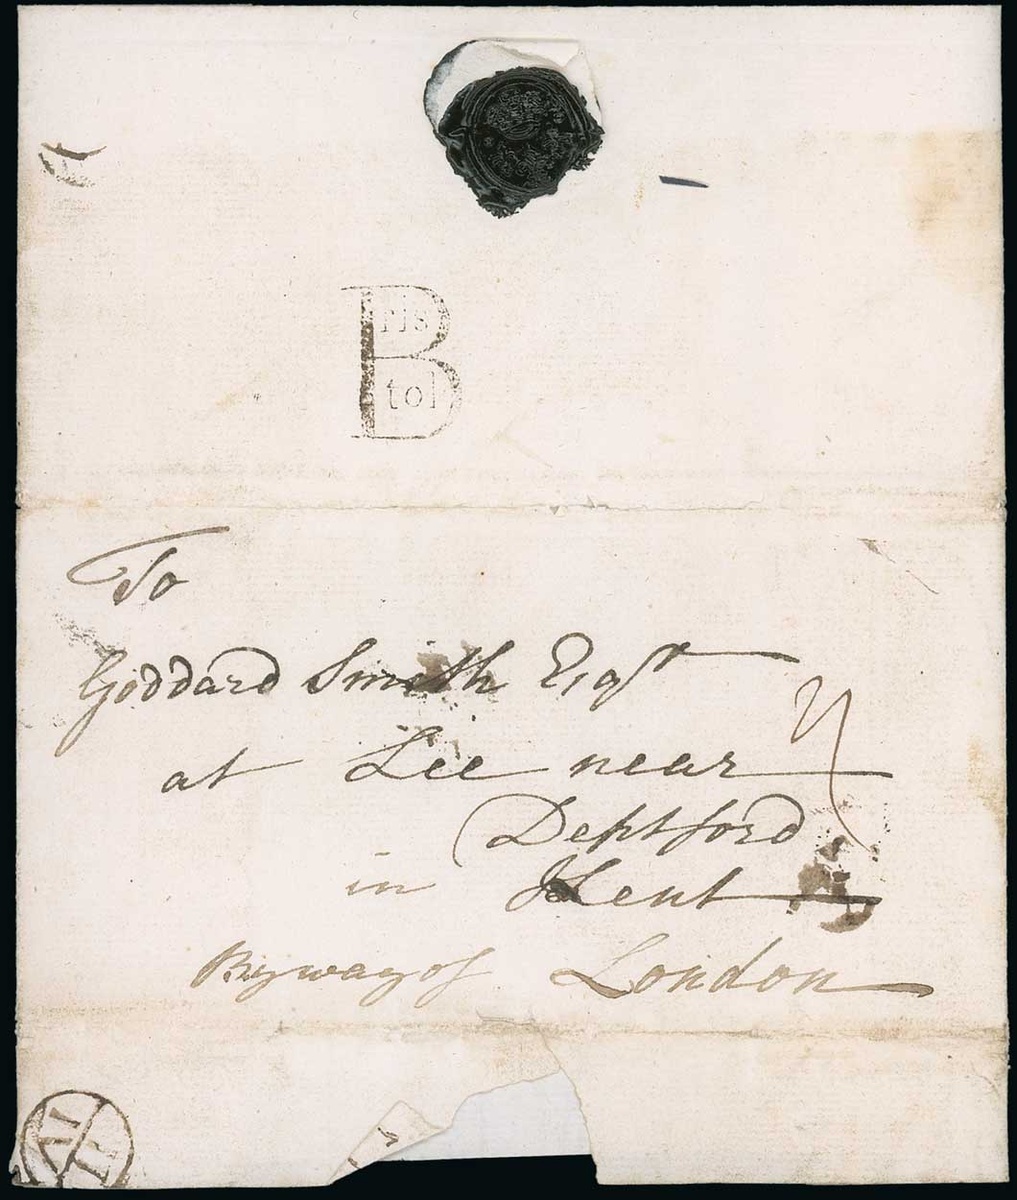 Bris
tol
To
Goddard Smith Esqr
at Lee near
Deptford
in Kent
By way of London